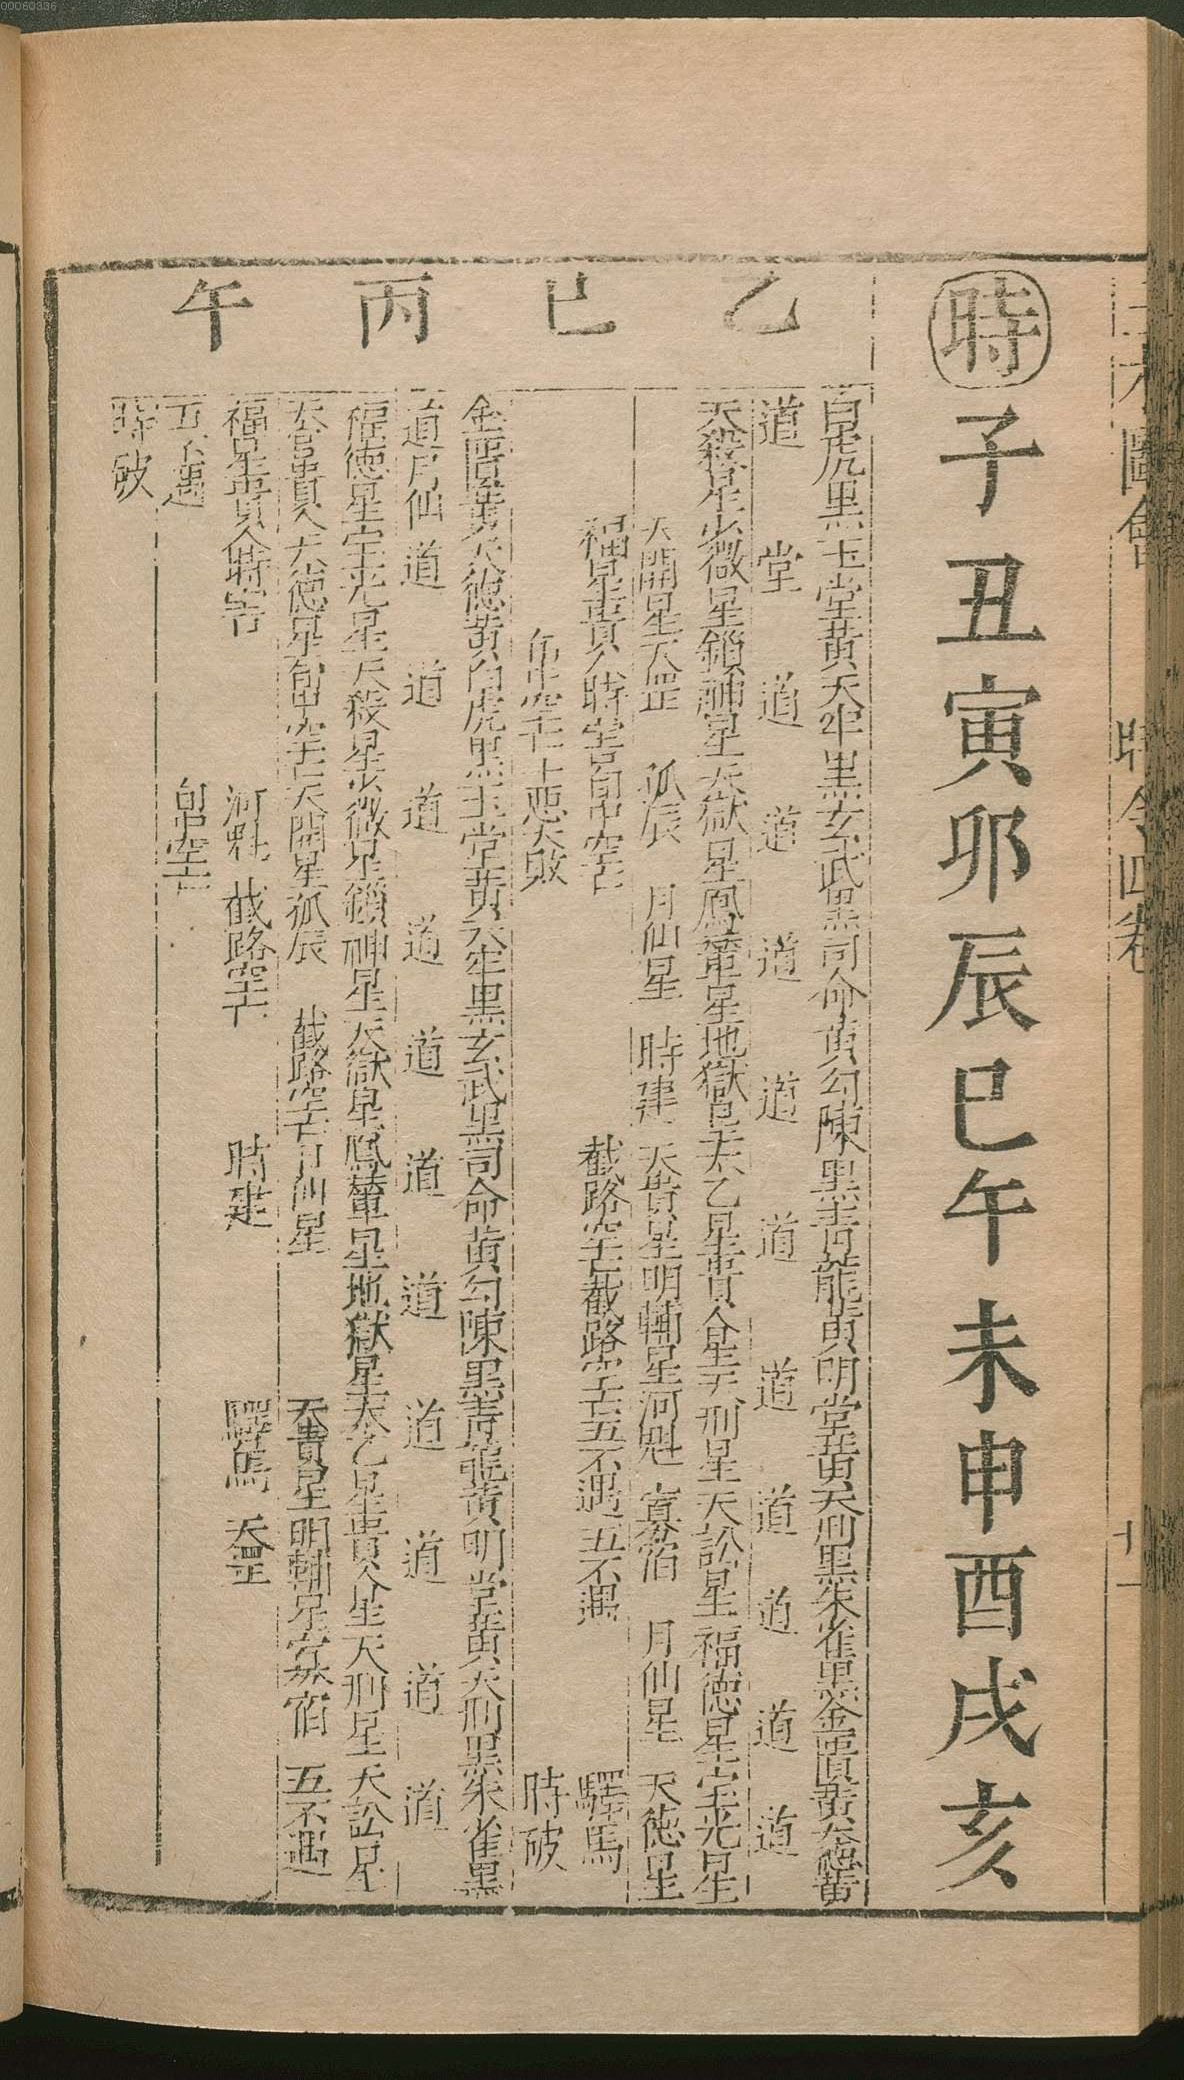 00060336
圖會 時令四卷
時子丑寅卯辰巳午未申酉戌亥
乙巳丙午
白虎黑玉堂黄天牢黒玄武黒司命黄勾陳黑青龍黄明堂黄天刑黒朱雀黒金匱黄天德黄
道 堂 道 道 道 道 道 道 道 道 道 道
天殺星少微星鎖神星天獄星鳳輦星地獄星天乙星貴人星天刑星天訟星福德星宝光星
天開星天罡 孤辰 月仙星 時建 天貴星明輔星河魁 寡宿 月仙星 天德星
福星貴人時害旬中空亡 截路空亡截路空亡五不遇五不遇 驛馬
旬中空亡十惡大敗 時破
金匱黄天德黄白虎黒玉堂黄天牢黒玄武黒司命黄勾陳黒青龍黄明堂黄天刑黒朱雀黒
道月仙 道 道 道 道 道 道 道 道 道 道 道
福德星宝光星天殺星少微星鎖神星天獄星鳳輦星地獄星天乙星貴人星天刑星天訟星
天官貴人天德星旬中空亡天開星孤辰 截路空亡月仙星 天貴星明輔星寡宿 五不遇
福星貴人時害 河魁 截路空亡 時建 驛馬 天罡
五不遇 旬中空亡
時破